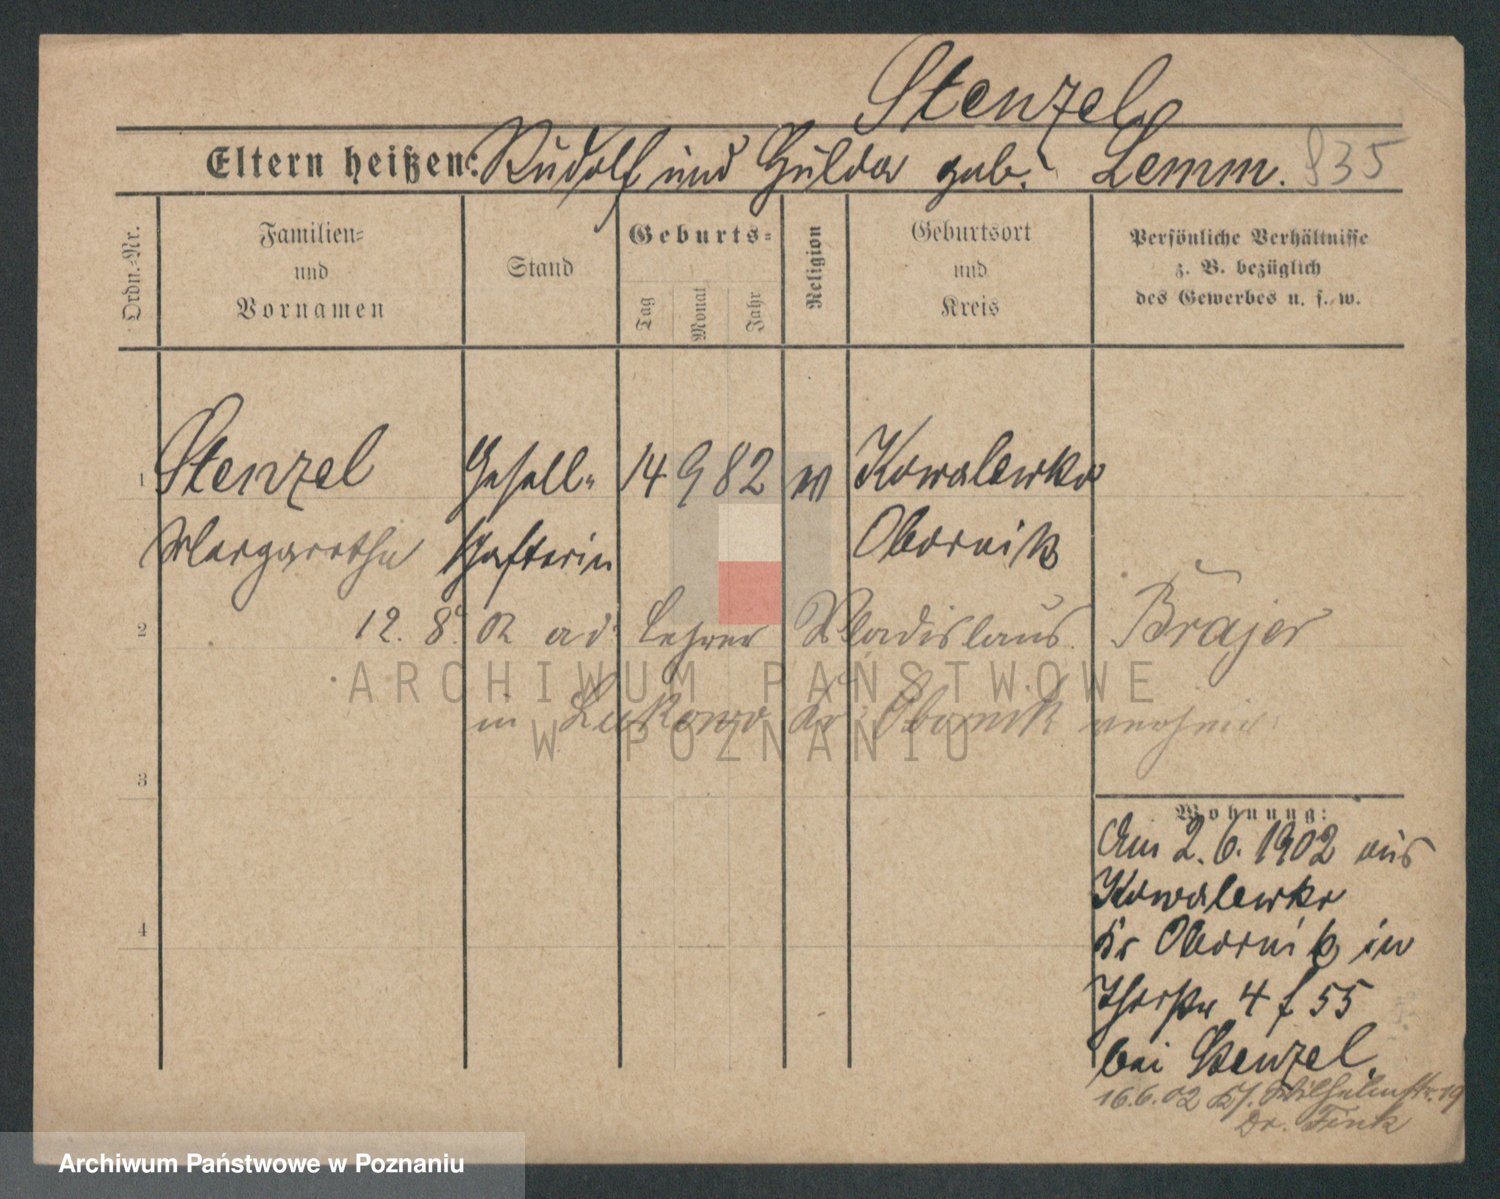 Stenzel
Eltern heißen: Rudolf und Hulda geb. Lemm. 835
Ordn.=Nr.
Familien=
und
Vornamen
Stand
Geburts=
Tag
Monat
Jahr
Religion
Geburtsort
und
Kreis
Persönliche Verhältnisse
z. B. bezüglich
des Gewerbes u. s. w.
1 Stenzel Gesell= 14 9 82 Kowalewko
Margarethe schafterin Obornik
2 12. 8. 02 ad Lehrer Wladislaus Bräjer
in Lukowo Kr. Obornik
ARCHIWUM PAŃSTWOWE
W POZNANIU
3
Wohnung:
Am 2. 6. 1902 aus
Kowalewko
4 Kr Obornik in
4 f 55
bei Stenzel.
16.6.02 Wilhelmstr. 19
Dr. Fink
Archiwum Państwowe w Poznaniu